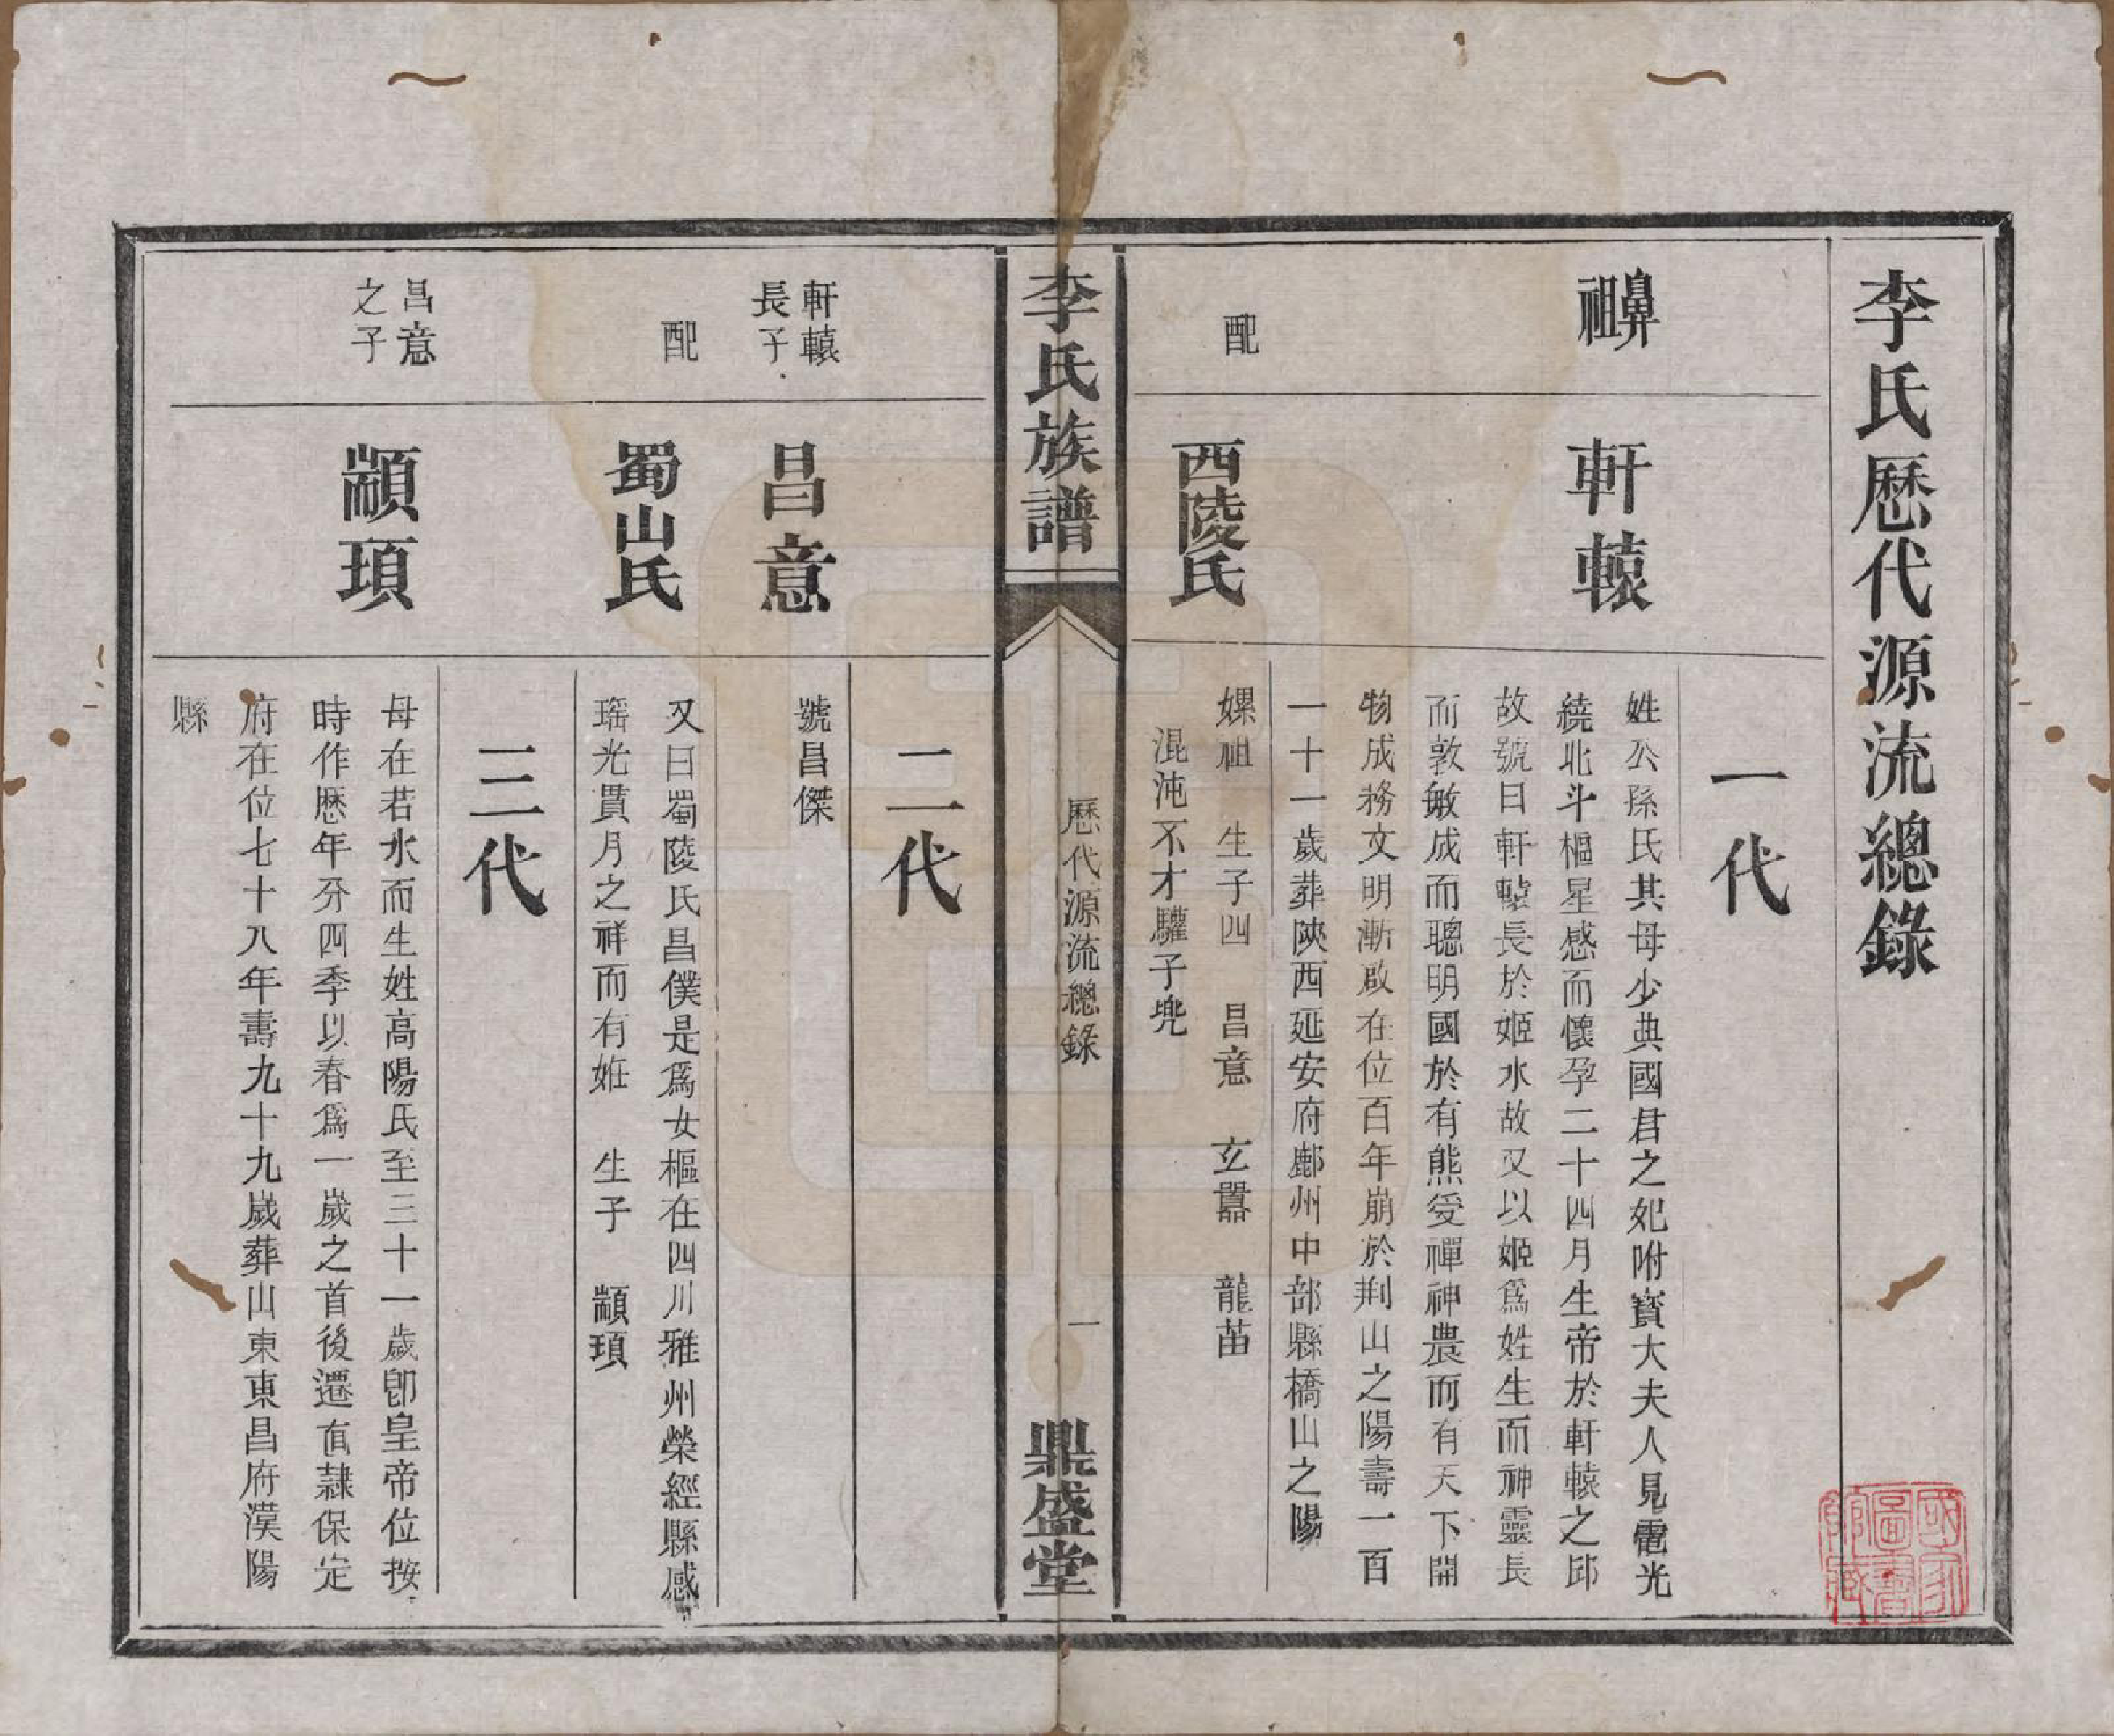 李氏厯代源流總錄
一代
鼻祖
軒轅
姓公孫氏其母少典國君之妃附寶大夫人見電光
繞北斗樞星感而懷孕二十四月生帝於軒轅之邱
故號曰軒轅長於姬水故又以姬爲姓生而神靈長
而敦敏成而聰明國於有熊受禪神農而有天下開
物成務文明漸啟在位百年崩於荆山之陽壽一百
一十一歲葬陝西延安府鄜州中部縣橋山之陽
配
西陵氏
嫘祖 生子四 昌意 玄囂 龍苗
混沌不才驩子兜
李氏族譜
厯代源流總錄
一
鼎盛堂
二代
軒轅
長子
昌意
號昌傑
配
蜀山氏
又曰蜀陵氏昌僕是爲女樞在四川雅州榮經縣感
瑶光貫月之祥而有姙 生子 顓頊
三代
昌意
之子
顓頊
母在若水而生姓高陽氏至三十一歲卽皇帝位按
時作厯年分四季以春爲一歲之首後遷直隷保定
府在位七十八年壽九十九歲葬山東東昌府濮陽
縣
國家
圖書
館藏